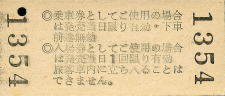 1354
◎乗車券としてご使用の場合
は発売当日限り有効 下車
前途無効
◎入場券としてご使用の場合
は発売当日1回限り有効
旅客車内に立ち入ることは
できません。
1354